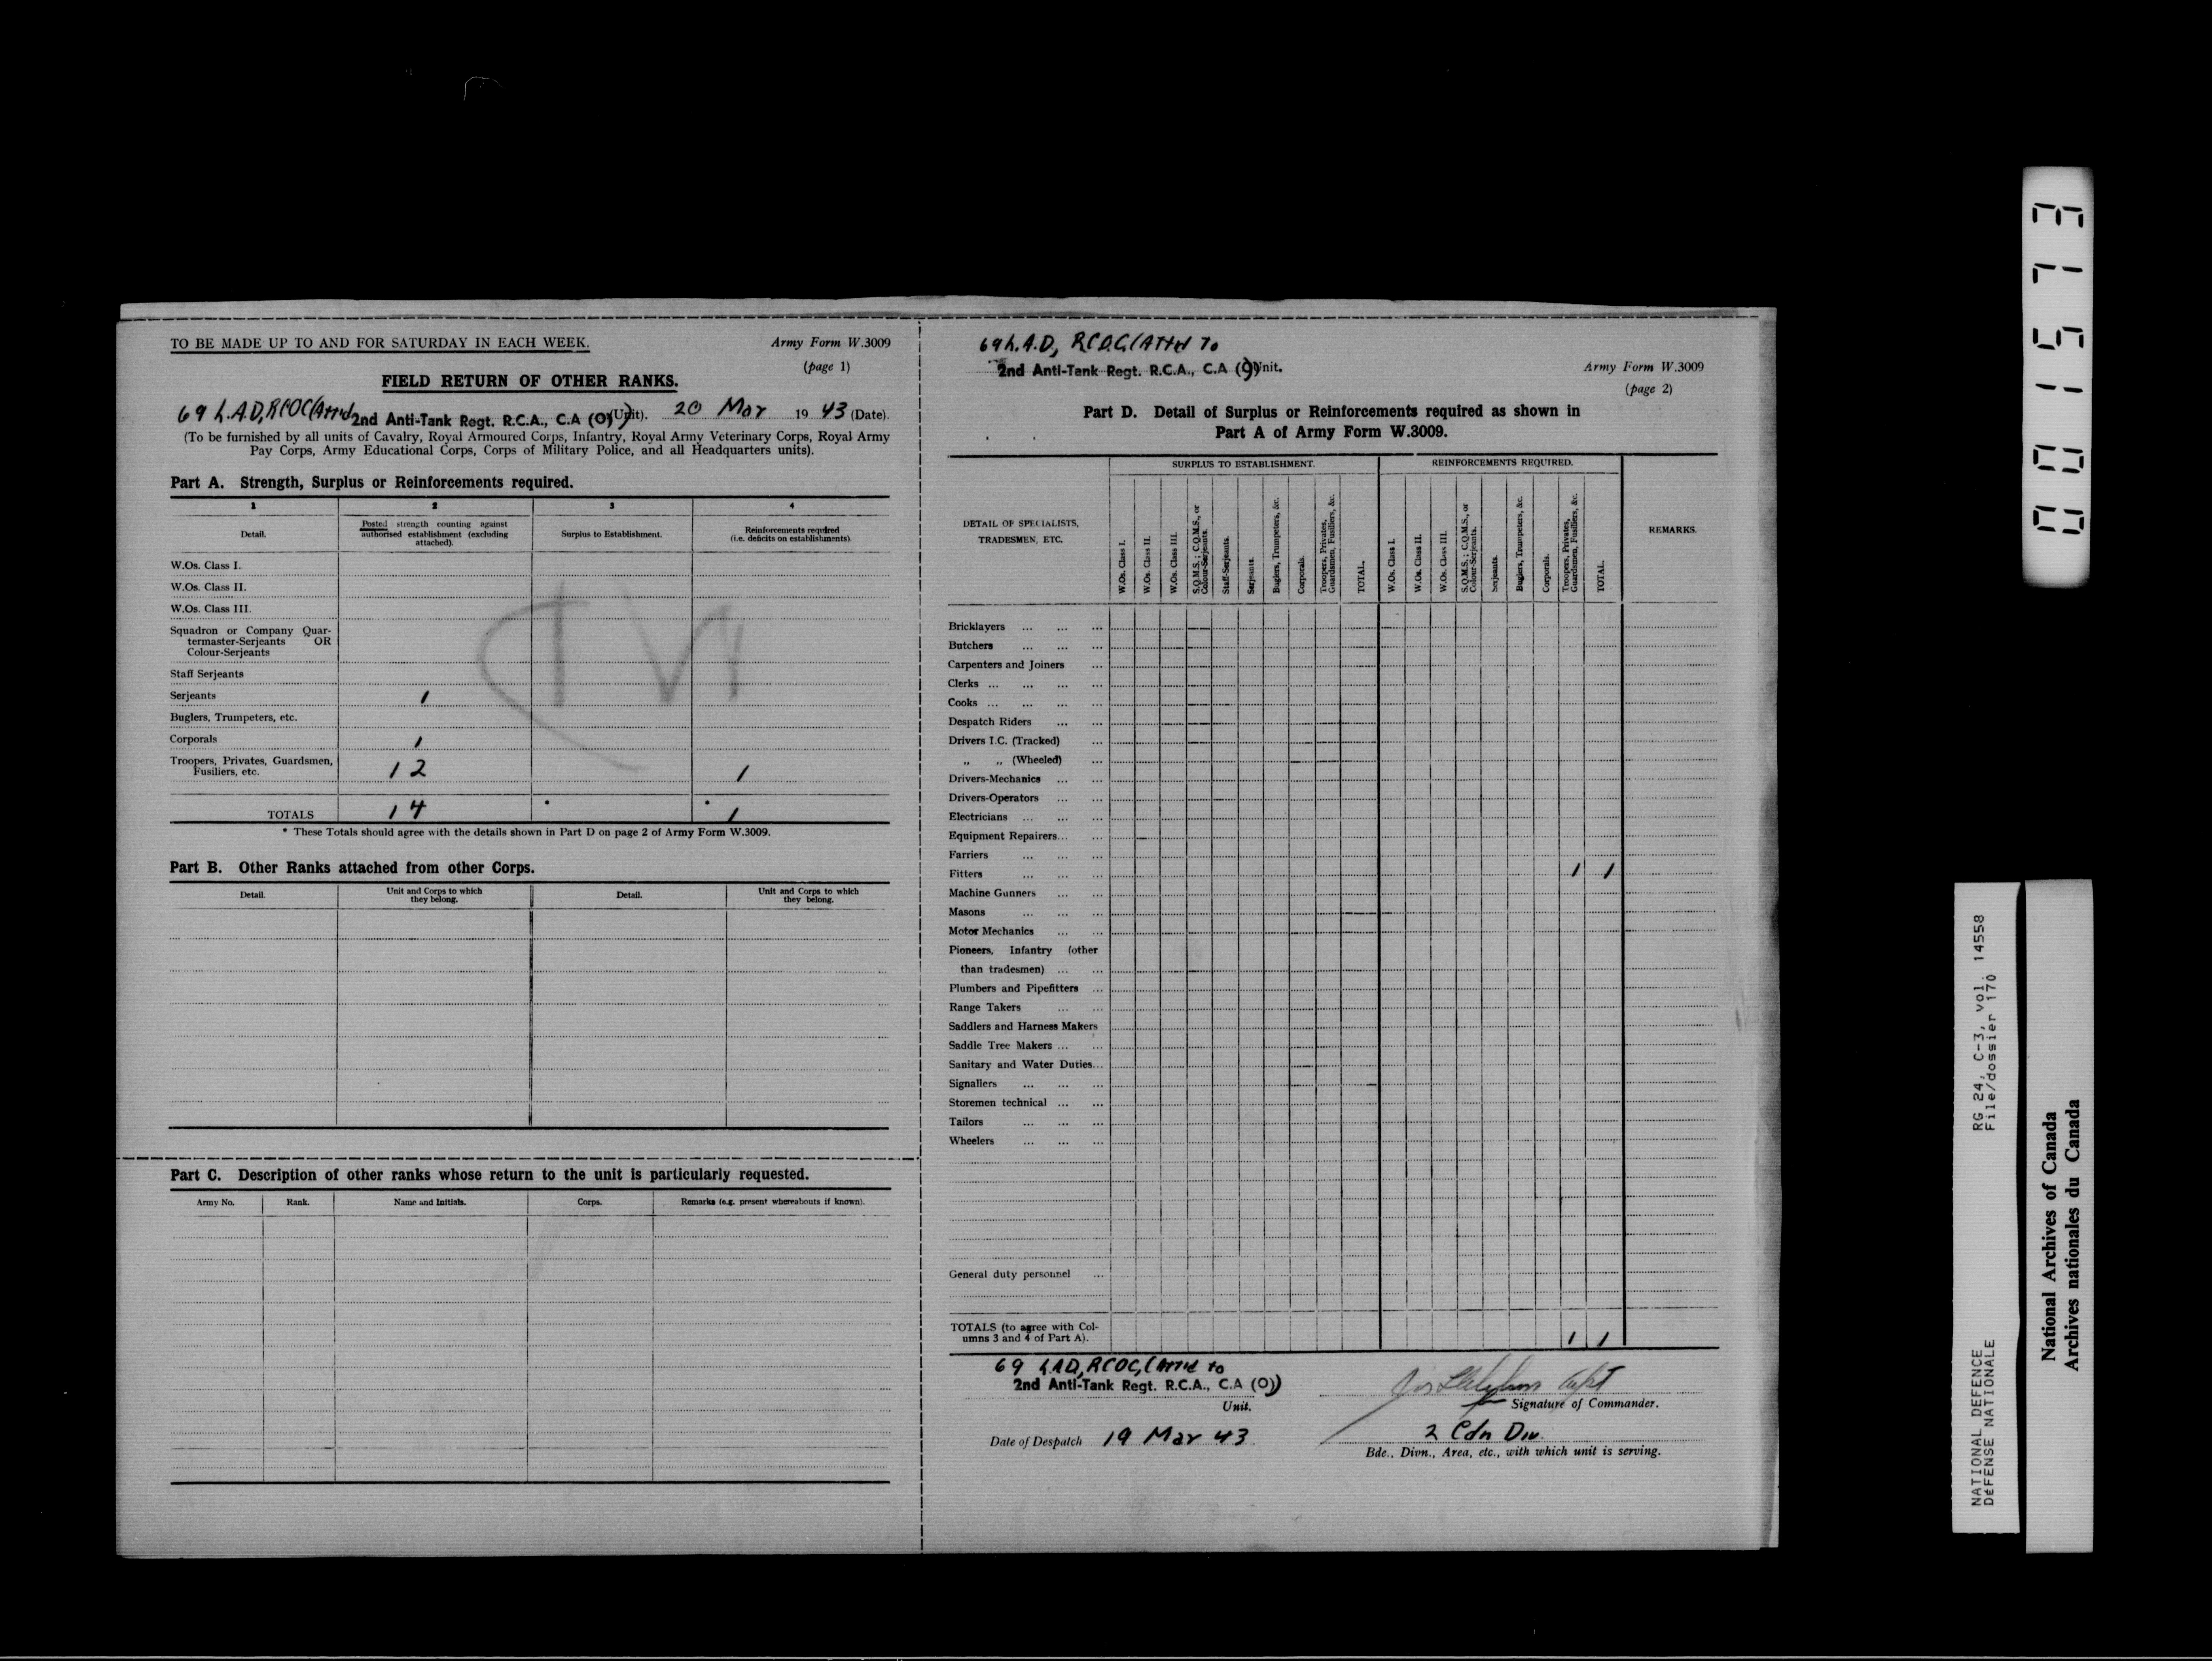 TO BE MADE UP TO AND FOR SATURDAY IN EACH WEEK.
Army Form W.3009
(page 1)
FIELD RETURN OF OTHER RANKS.
69 L.A.D, RCOC (Attd 2nd Anti-Tank Regt. R.C.A., C.A (O)) (Unit). 20 Mar 1943 (Date).
(To be furnished by all units of Cavalry, Royal Armoured Corps, Infantry, Royal Army Veterinary Corps, Royal Army
Pay Corps, Army Educational Corps, Corps of Military Police, and all Headquarters units).
Part A. Strength, Surplus or Reinforcements required.
1 2 3 4
Detail.
Posted strength counting against
authorised establishment (excluding
attached).
Surplus to Establishment.
Reinforcements required
(i.e. deficits on establishments)
W.Os. Class I.
W.Os. Class II.
W.Os. Class III.
Squadron or Company Quar-
termaster-Serjeants OR
Colour-Serjeants
Staff Serjeants
Serjeants 1
Buglers, Trumpeters, etc.
Corporals 1
Troopers, Privates, Guardsmen,
Fusiliers, etc. 12 1
TOTALS 14 * * 1
* These Totals should agree with the details shown in Part D on page 2 of Army Form W.3009.
Part B. Other Ranks attached from other Corps.
Detail.
Unit and Corps to which
they belong.
Detail.
Unit and Corps to which
they belong.
Part C. Description of other ranks whose return to the unit is particularly requested.
Army No. Rank. Name and Initials. Corps. Remarks (e.g. present whereabouts if known).
69 L.A.D, RCOC (Attd To
2nd Anti-Tank Regt. R.C.A., C.A (O)) Unit.
Army Form W.3009
(page 2)
Part D. Detail of Surplus or Reinforcements required as shown in
Part A of Army Form W.3009.
DETAIL OF SPECIALISTS,
TRADESMEN, ETC.
SURPLUS TO ESTABLISHMENT.
W.Os. Class I.
W.Os. Class II.
W.Os. Class III.
S.Q.M.S.; C.Q.M.S., or
Colour-Serjeants.
Staff-Serjeants.
Serjeants.
Buglers, Trumpeters, &c.
Corporals.
Troopers, Privates,
Guardsmen, Fusiliers, &c.
TOTAL.
REINFORCEMENTS REQUIRED.
W.Os. Class I.
W.Os. Class II.
W.Os. Class III.
S.Q.M.S.; C.Q.M.S., or
Colour-Serjeants.
Serjeants.
Buglers, Trumpeters, &c.
Corporals.
Troopers, Privates,
Guardsmen, Fusiliers, &c.
TOTAL.
REMARKS.
Bricklayers ... ... ...
Butchers ... ... ...
Carpenters and Joiners ...
Clerks ... ... ... ...
Cooks ... ... ... ...
Despatch Riders ... ...
Drivers I.C. (Tracked) ...
„ „ (Wheeled) ...
Drivers-Mechanics ... ...
Drivers-Operators ... ...
Electricians ... ... ...
Equipment Repairers... ...
Farriers ... ... ...
Fitters ... ... ... 1 1
Machine Gunners ... ...
Masons ... ... ...
Motor Mechanics ... ...
Pioneers, Infantry (other
than tradesmen) ... ...
Plumbers and Pipefitters ...
Range Takers ... ...
Saddlers and Harness Makers
Saddle Tree Makers ... ...
Sanitary and Water Duties...
Signallers ... ... ...
Storemen technical ... ...
Tailors ... ... ...
Wheelers ... ... ...
General duty personnel ...
TOTALS (to agree with Col-
umns 3 and 4 of Part A). 1 1
69 LAD, RCOC, (Attd to
2nd Anti-Tank Regt. R.C.A., C.A (O))
Unit.
Capt
for Signature of Commander.
Date of Despatch 19 Mar 43
2 Cdn Div.
Bde., Divn., Area, etc., with which unit is serving.
001573
NATIONAL DEFENCE RG 24, C-3, vol. 14558
DÉFENSE NATIONALE File/dossier 170
National Archives of Canada
Archives nationales du Canada